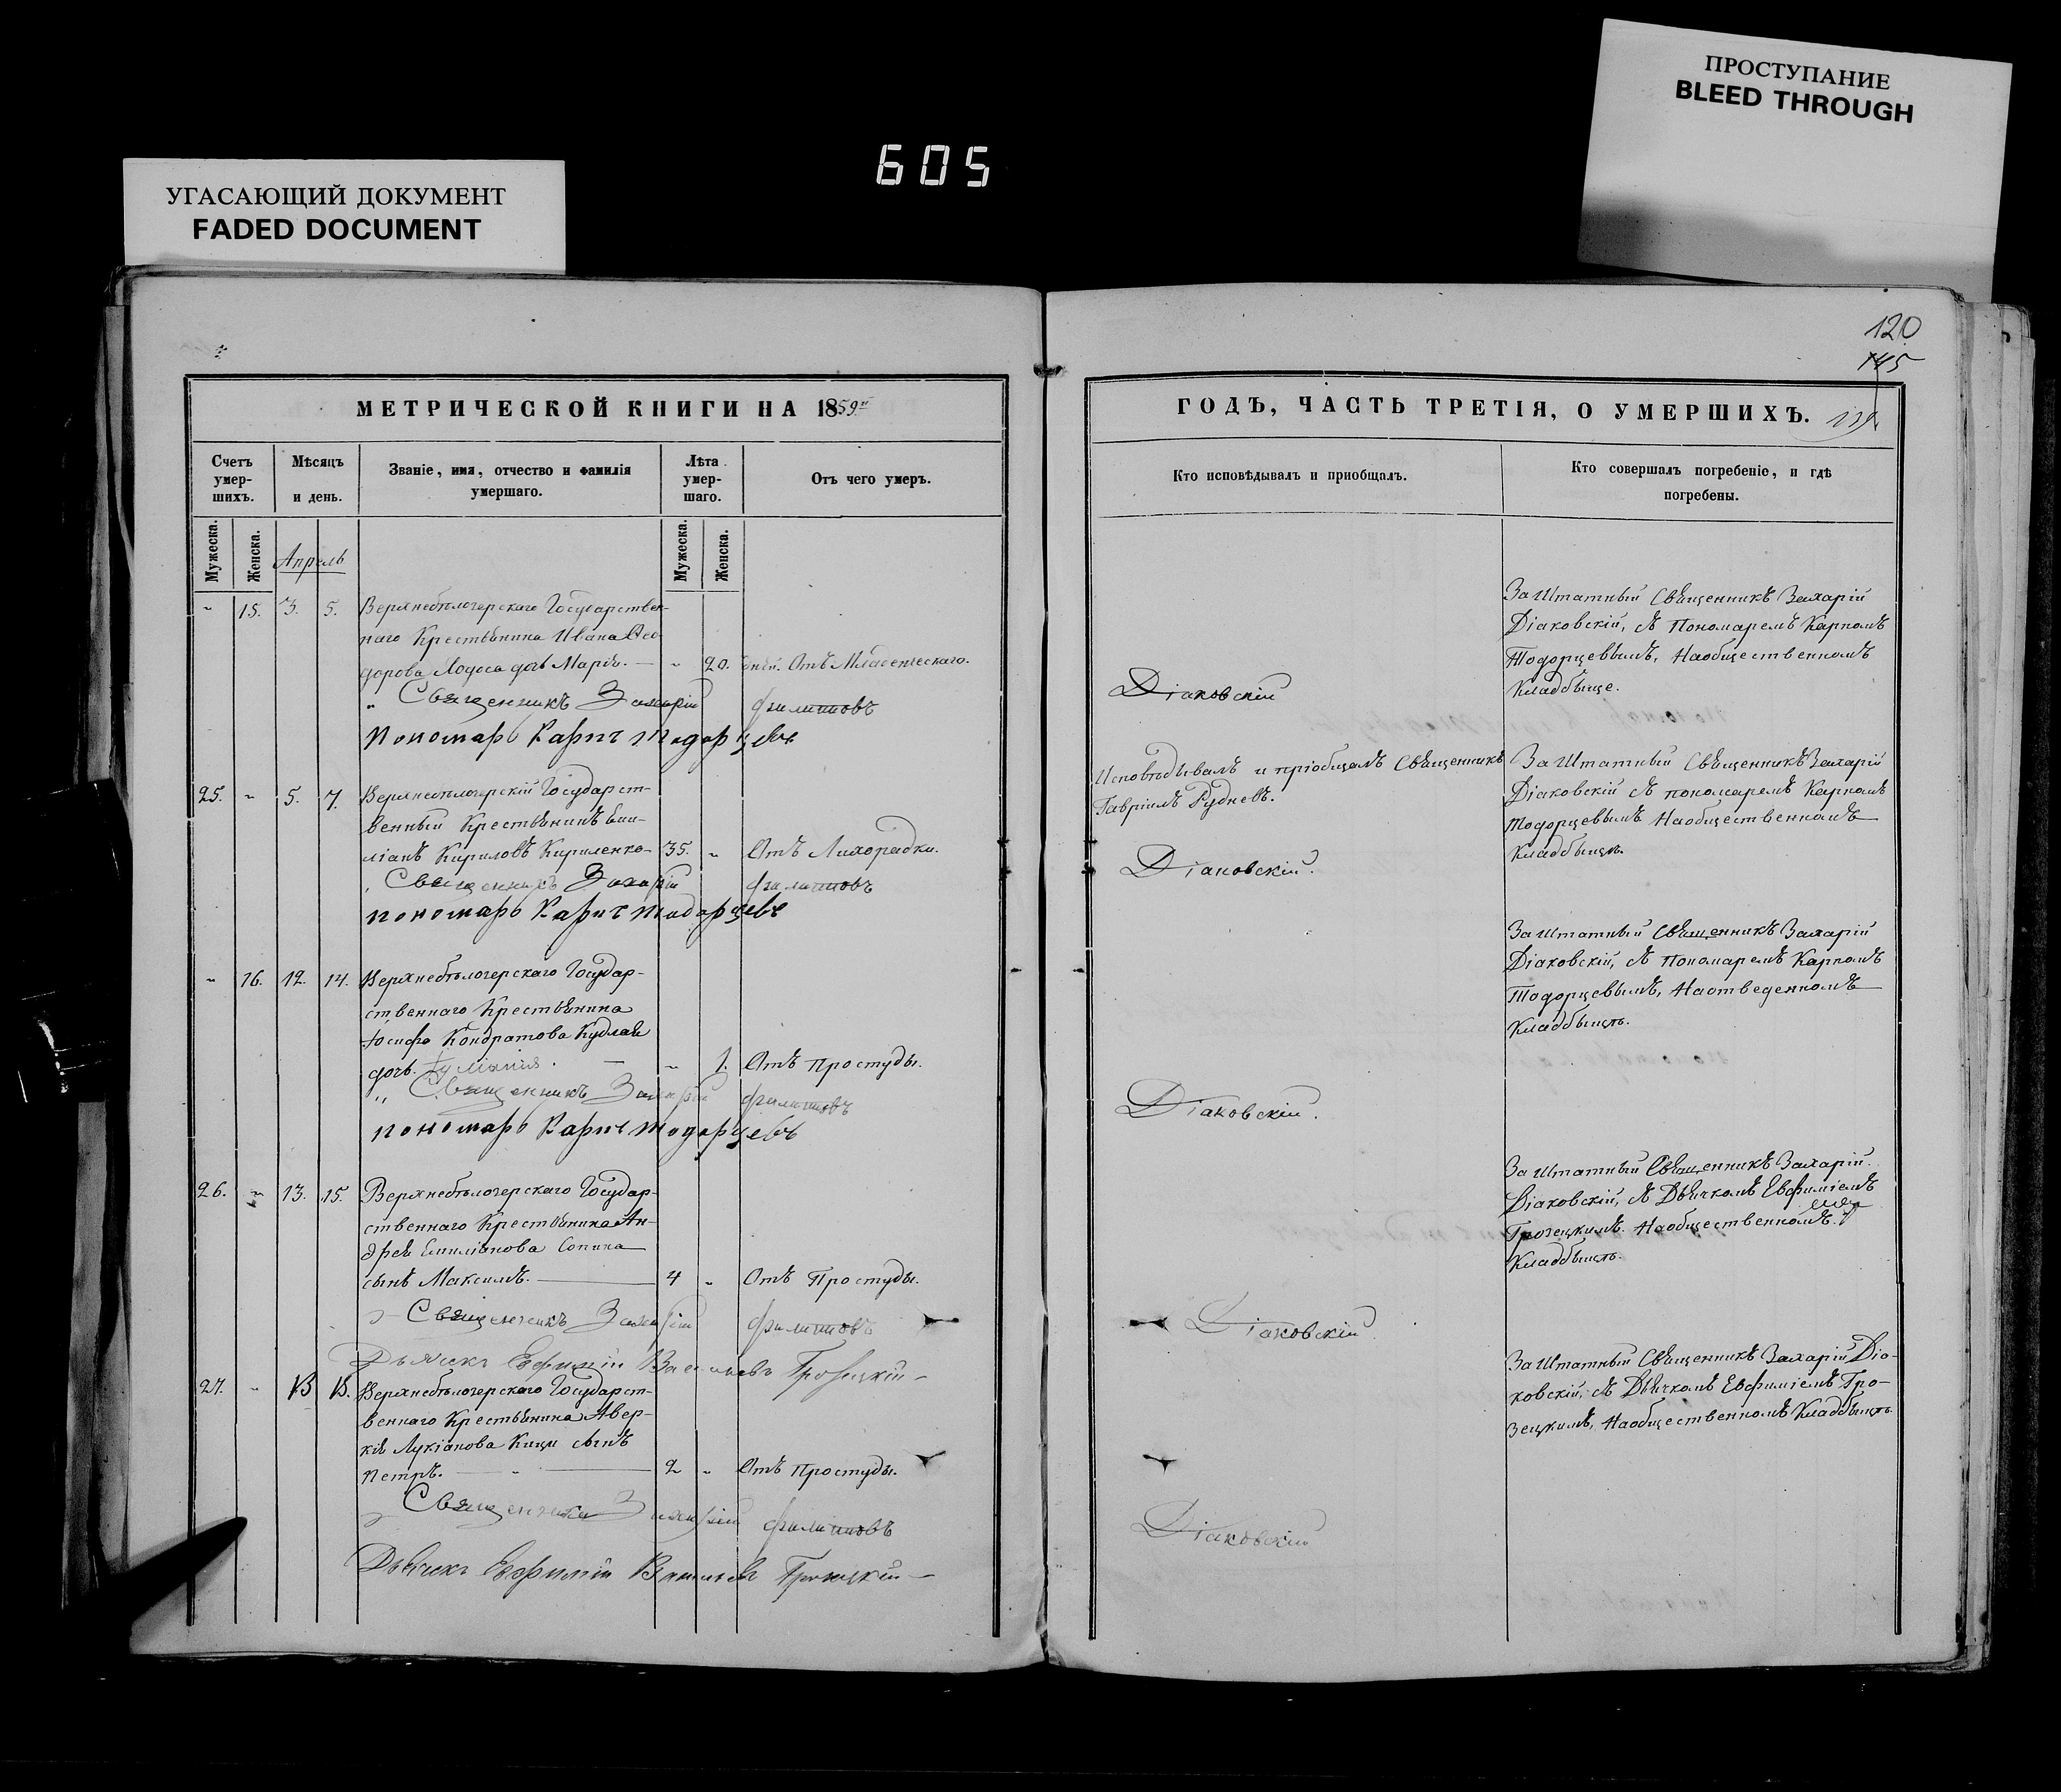 ПРОСТУПАНИЕ
BLEED THROUGH
605
УГАСАЮЩИЙ ДОКУМЕНТ
FADED DOCUMENT
120
145
МЕТРИЧЕСКОЙ КНИГИ НА 1859
ГОДЪ, ЧАСТЬ ТРЕТІЯ, О УМЕРШИХЪ. 119
Счетъ умер-шихъ.
Мѣсяцъ и день.
Званіе, имя, отчество и фамилія умершаго.
Лѣта умер-шаго.
Отъ чего умеръ.
Кто исповѣдывалъ и приобщалъ.
Кто совершалъ погребеніе, и гдѣ погребены.
Мужеска.
Женска.
Мужеска.
Женска.
Апрель
" 15. 3. 5. Верхнебѣлозерскаго Государствен-
наго Крестьянина Ивана Ѳео-
дорова Ходоса дочь Марія. — " 20. дней. Отъ Младенческаго.
Священникъ Захарій Филипповъ Діаковскій
Пономарь Карпъ Тодорцевъ
Заштатный Священникъ Захарій
Діаковскій, съ Пономаремъ Карпомъ
Тодорцевымъ, На общественномъ
Кладбыще.
25. " 5. 7. Верхнебѣлозерскій Государст-
венный Крестьянинъ Еми-
ліанъ Кириловъ Кириленко 35. " Отъ Лихорадки.
Священникъ Захарій Филипповъ Діаковскій.
пономарь Карпъ Тодорцевъ
Исповѣдывалъ и пріобщалъ Священникъ
Гавріилъ Рудневъ.
Заштатный Священникъ Захарій
Діаковскій съ пономаремъ Карпомъ
Тодорцевымъ На общественномъ
Кладбыщѣ.
" 16. 12. 14. Верхнебѣлозерскаго Государ-
ственнаго Крестьянина
Іосифа Кондратова Кудлая
дочь — " 1. Отъ Простуды.
Священникъ Захарій Филипповъ Діаковскій.
пономарь Карпъ Тодорцевъ
Заштатный Священникъ Захарій
Діаковскій, съ Пономаремъ Карпомъ
Тодорцевымъ, На отведенномъ
Кладбыщѣ.
26. " 13. 15. Верхнебѣлозерскаго Государ-
ственнаго Крестьянина Ан-
дрея Емиліанова Сопина
сынъ Максимъ. — 4 " Отъ Простуды.
Священникъ Захарій Филипповъ Діаковскій.
Дьячекъ Евфимій Васильевъ Грозецкій
Заштатный Священникъ Захарій
Діаковскій, съ Дьячкомъ Евфиміемъ
Грозецкимъ. На общественномъ.
Кладбыщѣ.
27. " 13 15. Верхнебѣлозерскаго Государст-
веннаго Крестьянина Авер-
кія Лукіанова Кици сынъ
Петръ. — 2 " Отъ Простуды.
Священникъ Захарій Филипповъ Діаковскій
Дьячекъ Евфимій Васильевъ Грозецкій
Заштатный Священникъ Захарій Діа-
ковскій, съ Дьячкомъ Евфиміемъ Гро-
зецкимъ, На общественномъ Кладбыщѣ